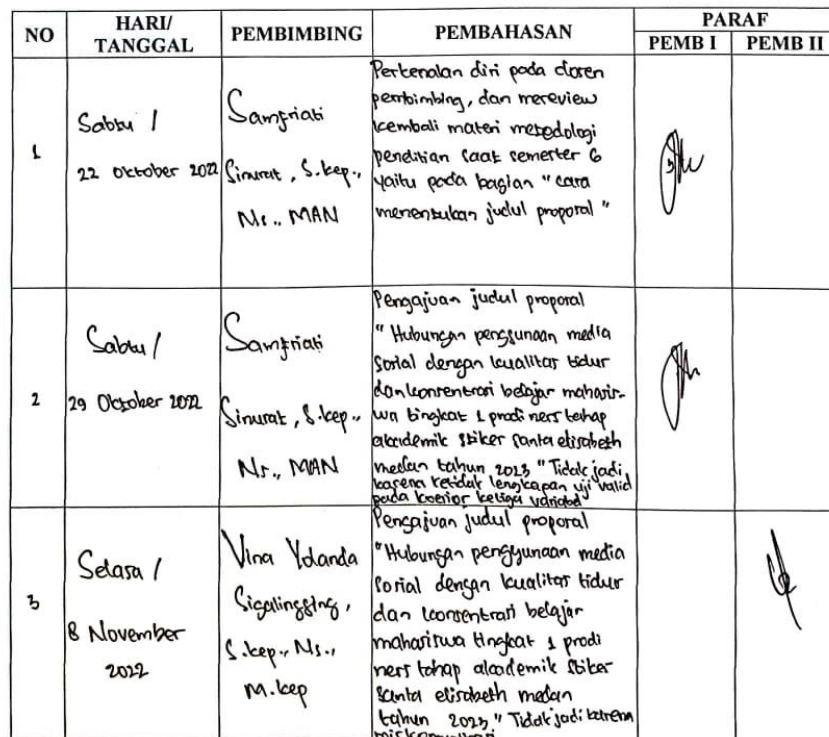 NO
HARI/
TANGGAL
PEMBIMBING
PEMBAHASAN
PARAF
PEMB I
PEMB II
1
Sabtu /
22 Oktober 2022
Samfriati
Sinurat, S.kep.,
Ns., MAN
Perkenalan diri pada dosen
pembimbing, dan mereview
kembali materi metodologi
penelitian saat semester 6
yaitu pada bagian "cara
menentukan judul proposal"
2
Sabtu /
29 Oktober 2022
Samfriati
Sinurat, S.kep.,
Ns., MAN
Pengajuan judul proposal
"Hubungan penggunaan media
sosial dengan kualitas tidur
dan konsentrasi belajar mahasis-
wa tingkat 1 prodi ners tahap
akademik stikes santa elisabeth
medan tahun 2023" Tidak jadi
karena ketidak lengkapan uji valid
pada koesior ketiga variabel
3
Selasa /
8 November
2022
Vina Yolanda
Sigalingging,
S.kep., Ns.,
M.kep
Pengajuan judul proposal
"Hubungan penggunaan media
sosial dengan kualitas tidur
dan konsentrasi belajar
mahasiswa tingkat 1 prodi
ners tahap akademik stikes
santa elisabeth medan
tahun 2023" Tidak jadi karena